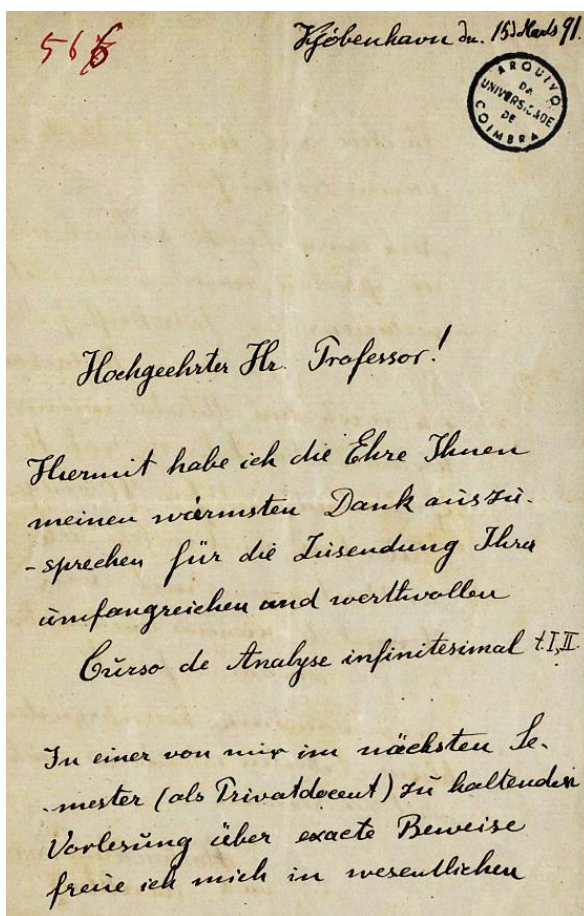 566
Kjöbenhavn dn. 15d Marts 91.
ARQUIVO DA UNIVERSIDADE DE COIMBRA
Hochgeehrter Hr. Professor!
Hiermit habe ich die Ehre Ihnen
meinen wärmsten Dank auszu-
-sprechen für die Zusendung Ihres
umfangreichen und werthvollen
Curso de Analyse infinitesimal t.I, II.
In einer von mir im nächsten Se-
-mester (als Privatdocent) zu haltenden
Vorlesung über exacte Beweise
freue ich mich in wesentlichen